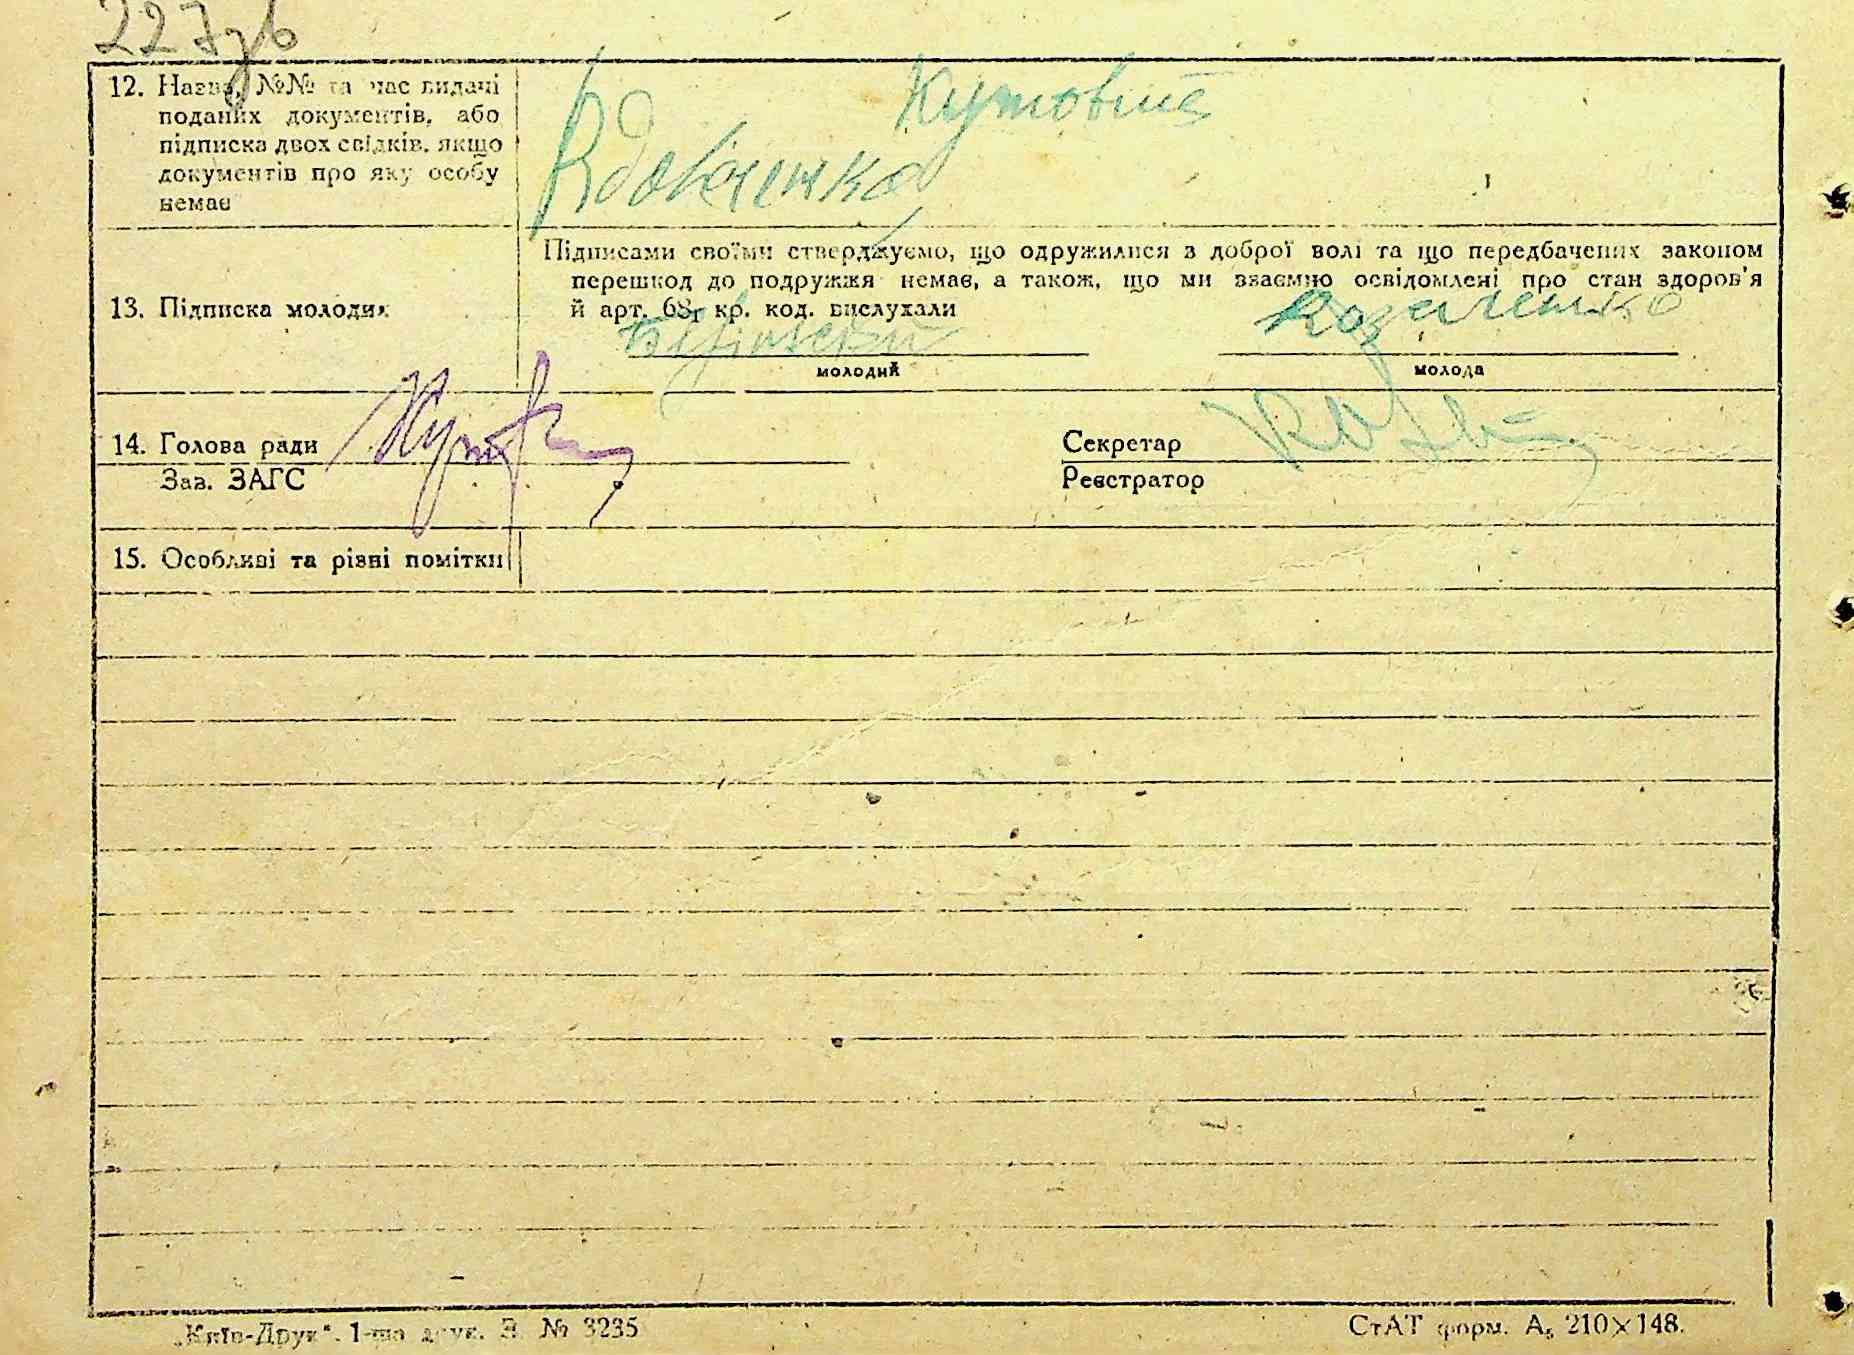 227зв
12. Назва, №№ та час видачі
поданих документів, або
підписка двох свідків, якщо
документів про яку особу
немає
Вдовиченко
13. Підписка молодих
Підписами своїми стверджуємо, що одружилися з доброї волі та що передбачених законом
перешкод до подружжя немає, а також, що ми взаємно освідомлені про стан здоров'я
й арт. 68₁ кр. код. вислухали
Козаченко
молодий
молода
14. Голова ради
Зав. ЗАГС
Секретар
Реєстратор
15. Особливі та різні помітки
„Київ-Друк“. 1-ша друк. З. № 3235
СтАТ форм. А₅ 210×148.